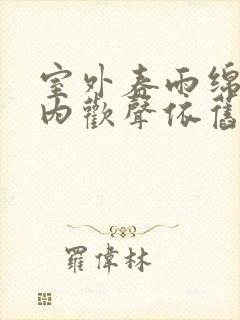 室外春雨綿
內歡聲依舊
羅偉林